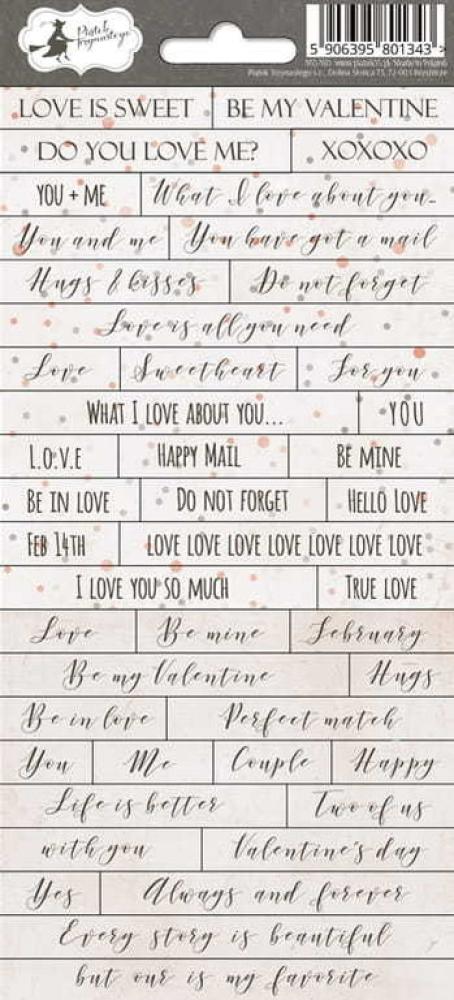 Piątek Trzynastego
5 906395 801343 >
Piątek Trzynastego s.c., Dolina Słońca 73, 72-003
LOVE IS SWEET BE MY VALENTINE
DO YOU LOVE ME? XOXOXO
YOU + ME What I love about you...
You and me You have got a mail
Hugs & kisses Do not forget
Love is all you need
Love Sweetheart For you
WHAT I LOVE ABOUT YOU... YOU
L.O.V.E HAPPY MAIL BE MINE
BE IN LOVE DO NOT FORGET HELLO LOVE
FEB 14TH LOVE LOVE LOVE LOVE LOVE LOVE LOVE
I LOVE YOU SO MUCH TRUE LOVE
Love Be mine February
Be my Valentine Hugs
Be in love Perfect match
You Me Couple Happy
Life is better Two of us
with you Valentine's day
Yes Always and forever
Every story is beautiful
but our is my favorite